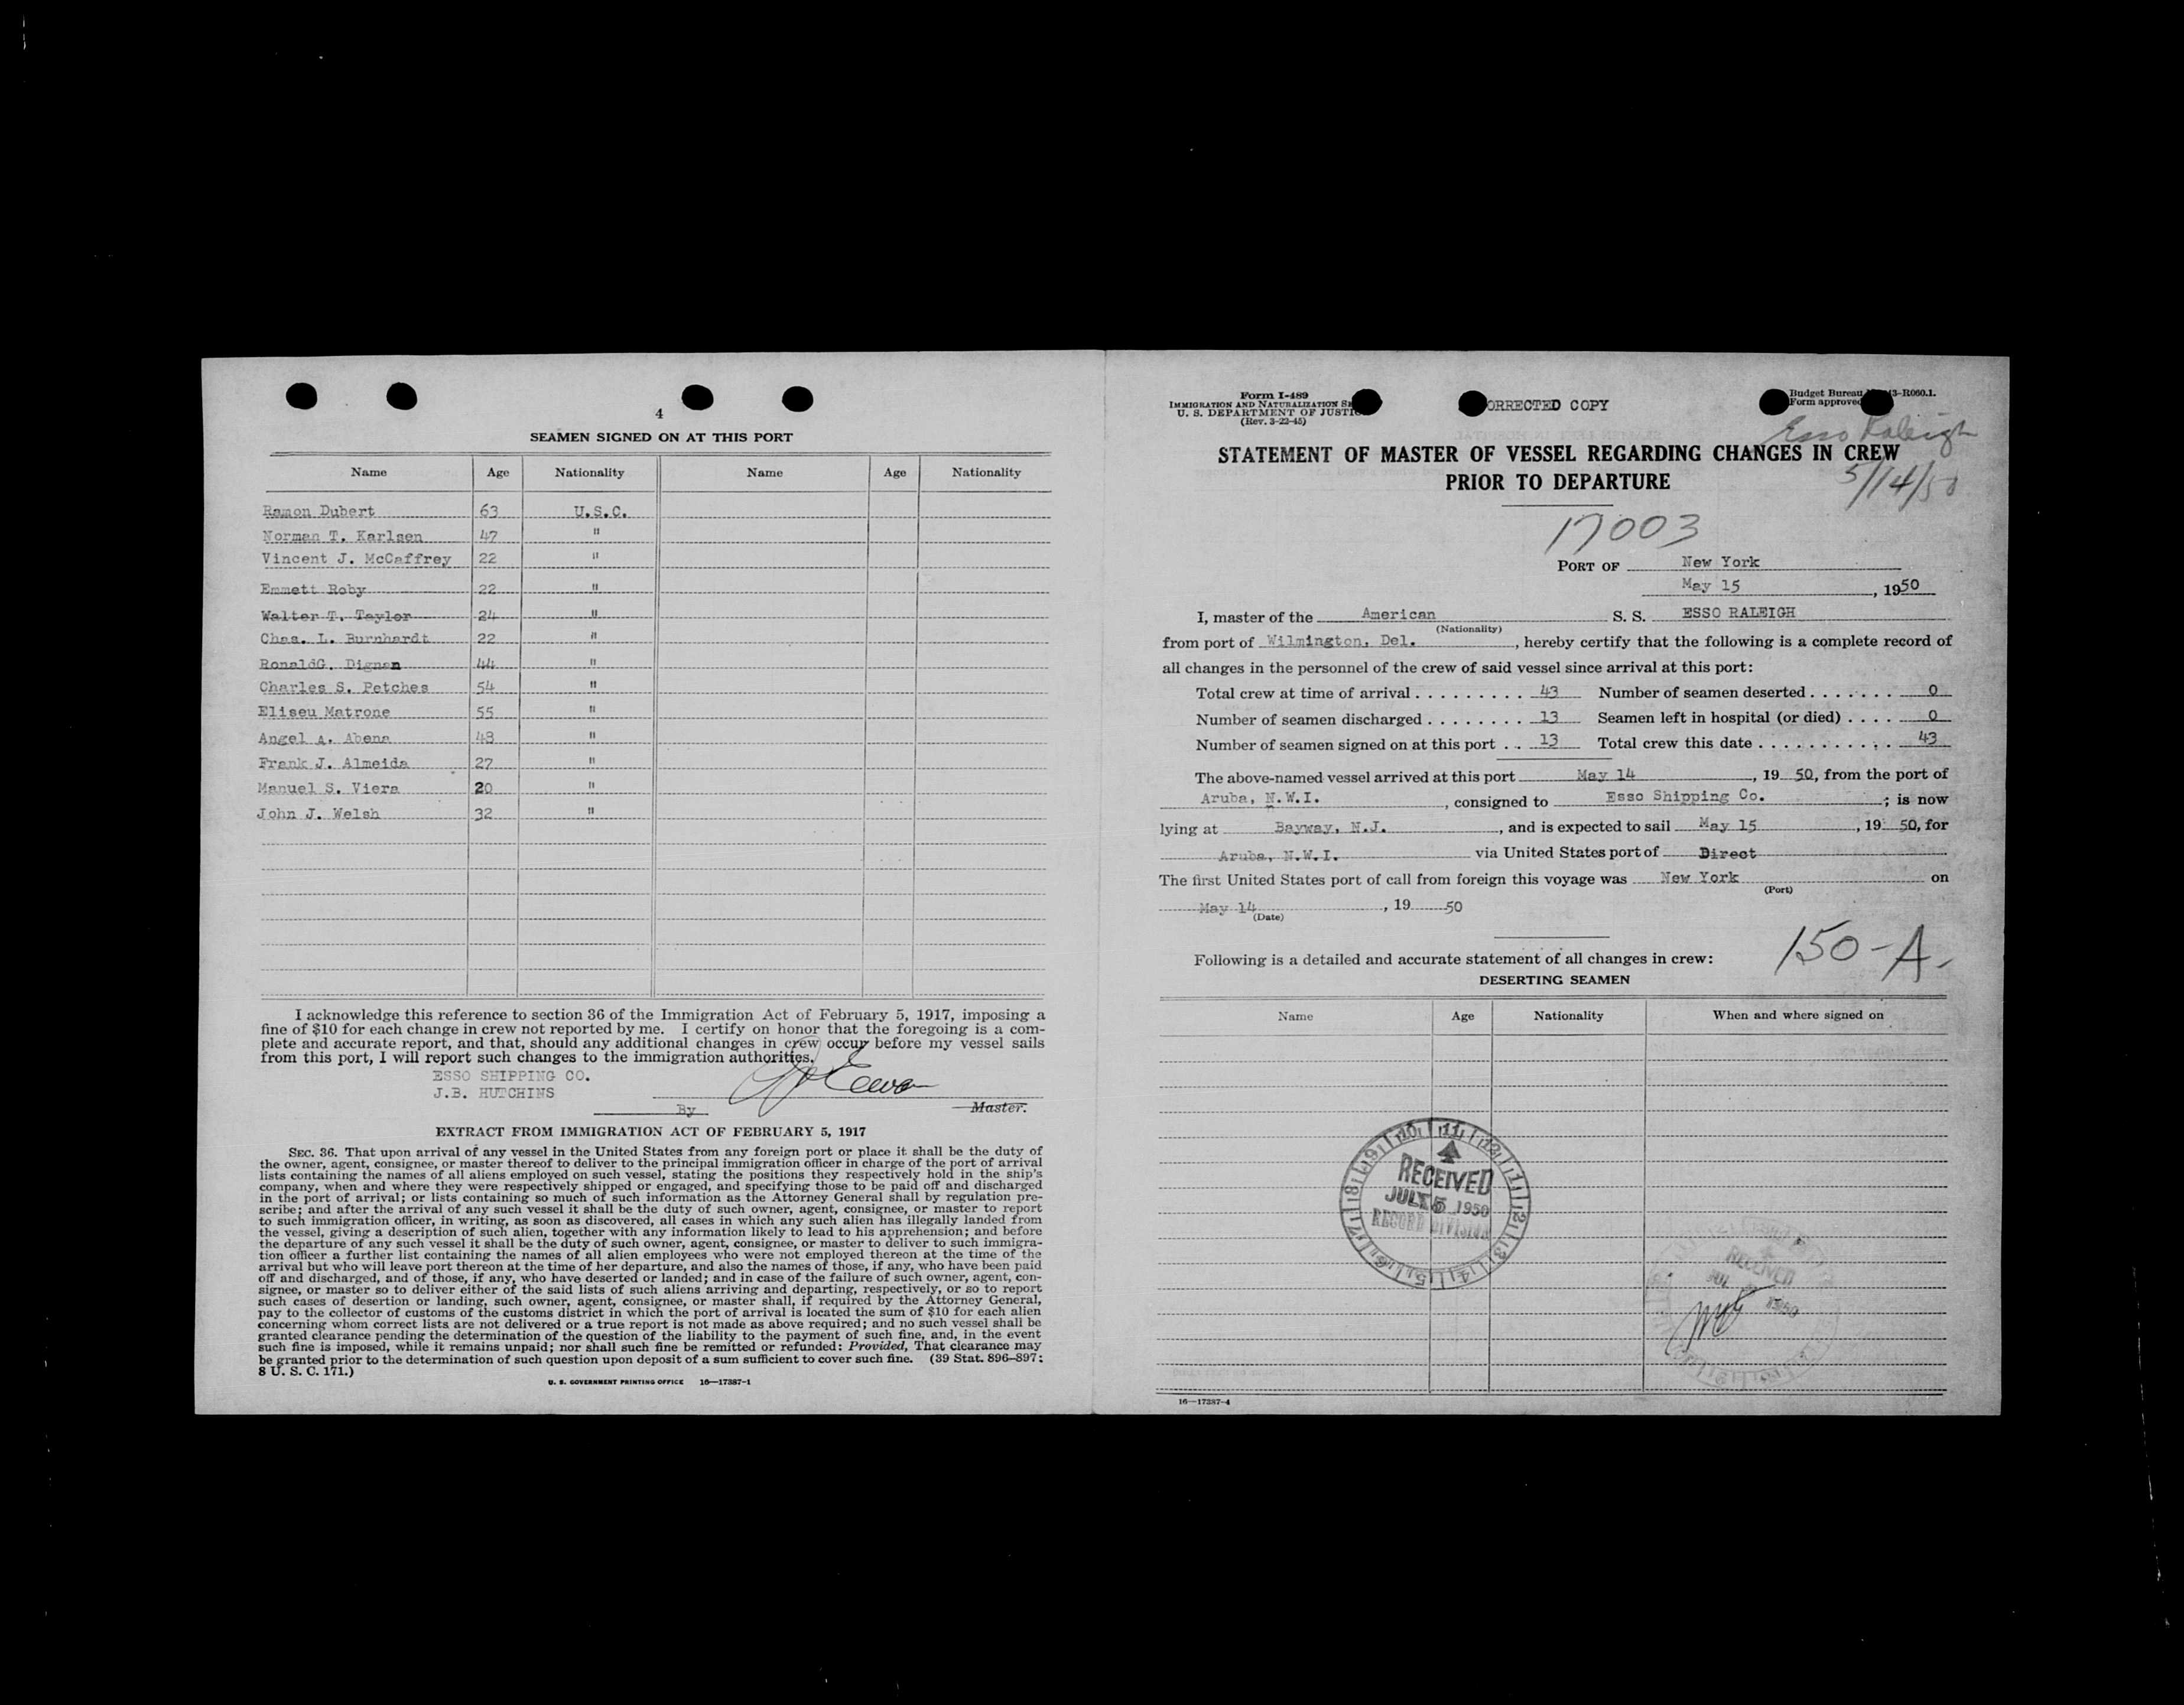 4
SEAMEN SIGNED ON AT THIS PORT
Name Age Nationality Name Age Nationality
Ramon Dubert 63 U.S.C.
Norman T. Karlsen 47 "
Vincent J. McCaffrey 22 "
Emmett Roby 22 "
Walter T. Taylor 24 "
Chas. L. Burnhardt 22 "
RonaldG. Dignan 44 "
Charles S. Petches 54 "
Eliseu Matrone 55 "
Angel A. Abena 48 "
Frank J. Almeida 27 "
Manuel S. Viera 20 "
John J. Welsh 32 "
I acknowledge this reference to section 36 of the Immigration Act of February 5, 1917, imposing a
fine of $10 for each change in crew not reported by me. I certify on honor that the foregoing is a com-
plete and accurate report, and that, should any additional changes in crew occur before my vessel sails
from this port, I will report such changes to the immigration authorities.
ESSO SHIPPING CO.
J.B. HUTCHINS
By Master.
EXTRACT FROM IMMIGRATION ACT OF FEBRUARY 5, 1917
SEC. 36. That upon arrival of any vessel in the United States from any foreign port or place it shall be the duty of
the owner, agent, consignee, or master thereof to deliver to the principal immigration officer in charge of the port of arrival
lists containing the names of all aliens employed on such vessel, stating the positions they respectively hold in the ship's
company, when and where they were respectively shipped or engaged, and specifying those to be paid off and discharged
in the port of arrival; or lists containing so much of such information as the Attorney General shall by regulation pre-
scribe; and after the arrival of any such vessel it shall be the duty of such owner, agent, consignee, or master to report
to such immigration officer, in writing, as soon as discovered, all cases in which any such alien has illegally landed from
the vessel, giving a description of such alien, together with any information likely to lead to his apprehension; and before
the departure of any such vessel it shall be the duty of such owner, agent, consignee, or master to deliver to such immigra-
tion officer a further list containing the names of all alien employees who were not employed thereon at the time of the
arrival but who will leave port thereon at the time of her departure, and also the names of those, if any, who have been paid
off and discharged, and of those, if any, who have deserted or landed; and in case of the failure of such owner, agent, con-
signee, or master so to deliver either of the said lists of such aliens arriving and departing, respectively, or so to report
such cases of desertion or landing, such owner, agent, consignee, or master shall, if required by the Attorney General,
pay to the collector of customs of the customs district in which the port of arrival is located the sum of $10 for each alien
concerning whom correct lists are not delivered or a true report is not made as above required; and no such vessel shall be
granted clearance pending the determination of the question of the liability to the payment of such fine, and, in the event
such fine is imposed, while it remains unpaid; nor shall such fine be remitted or refunded: Provided, That clearance may
be granted prior to the determination of such question upon deposit of a sum sufficient to cover such fine. (39 Stat. 896–897;
8 U. S. C. 171.)
U. S. GOVERNMENT PRINTING OFFICE 16—17387-1
Form I-489
IMMIGRATION AND NATURALIZATION
U. S. DEPARTMENT OF JUSTICE
(Rev. 3-22-45)
ORRECTED COPY
Budget Bureau 43-R060.1.
Form approved
Esso Raleigh
5/14/50
STATEMENT OF MASTER OF VESSEL REGARDING CHANGES IN CREW
PRIOR TO DEPARTURE
17003
PORT OF New York
May 15, 1950
I, master of the American S. S. ESSO RALEIGH
(Nationality)
from port of Wilmington, Del., hereby certify that the following is a complete record of
all changes in the personnel of the crew of said vessel since arrival at this port:
Total crew at time of arrival . . . . . . . . . 43 Number of seamen deserted . . . . . . . 0
Number of seamen discharged . . . . . . . . 13 Seamen left in hospital (or died) . . . . 0
Number of seamen signed on at this port . . 13 Total crew this date . . . . . . . . . . . 43
The above-named vessel arrived at this port May 14, 19 50, from the port of
Aruba, N.W.I., consigned to Esso Shipping Co.; is now
lying at Bayway, N.J., and is expected to sail May 15, 19 50, for
Aruba, N.W.I. via United States port of Direct
The first United States port of call from foreign this voyage was New York on
(Port)
May 14, 19 50
(Date)
150-A-
Following is a detailed and accurate statement of all changes in crew:
DESERTING SEAMEN
Name Age Nationality When and where signed on
RECEIVED
JUL 5 1950
RECORD DIVISION
RECEIVED
JUL
1950
16—17387-4